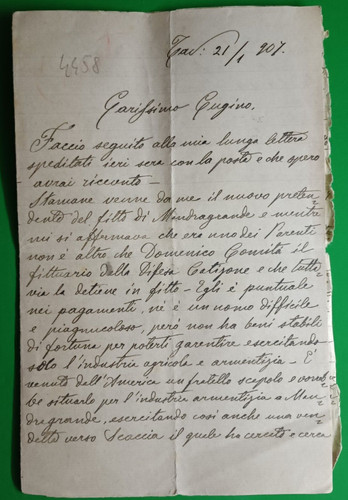 4458
Tav: 21/1 907.
Carissimo Cugino,
Faccio seguito alla mia lunga lettera
speditati ieri sera con la posta e che spero
avrai ricevuto –
Stamane venne da me il nuovo preten-
dente del fitto di Mandragrande e mentre
mi si affermava che era uno dei Parenti
non è altro che Domenico Comità il
fittuario della Difesa Calizone e che tutta
via la detiene in fitto – Egli è puntuale
nei pagamenti, nè è un uomo difficile
e piagnucoloso, però non ha beni stabili
di fortuna per poterti garentire esercitando
solo l'industria agricola e armentizia – È
venuto dall'America un fratello scapolo e vorreb-
be situarlo per l'industria armentizia a Man-
dregrande, esercitando così anche una ven-
detta verso Scaccia il quale ha cercato e cerca